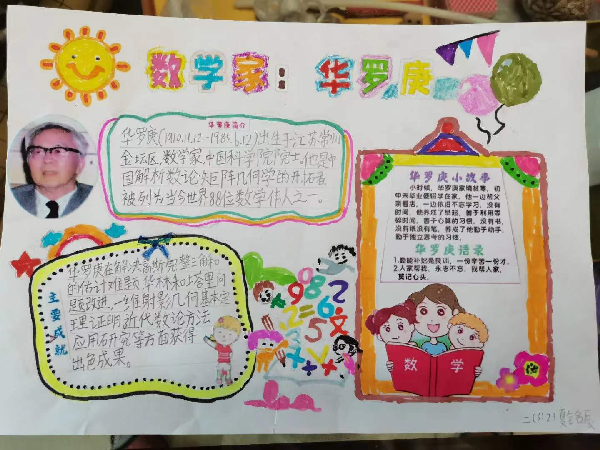 数学家：华罗庚
华罗庚简介
华罗庚(1910.11.12-1985.6.12)出生于江苏常州
金坛区,数学家,中国科学院院士,他是中
国解析数论、矩阵几何学的开拓者
被列为当今世界88位数学伟人之一。
主要成就
华罗庚在解决高斯完整三角和
的估计难题、华林和塔里问
题改进、一维射影几何基本定
理证明、近代数论方法
应用研究等方面获得
出色成果。
华罗庚小故事
小时候，华罗庚家境贫寒，初
中未毕业便辍学在家，他一边帮父
亲看店，一边依旧不忘学习，没有
时间，他养成了早起，善于利用零
碎时间，善于心算的习惯，没有书，
没有纸没有笔，养成了他勤于动手、
勤于独立思考的习惯。
华罗庚语录
1.勤能补拙是良训，一份辛苦一份才。
2.人家帮我，永志不忘，我帮人家，
莫记心头。
数学